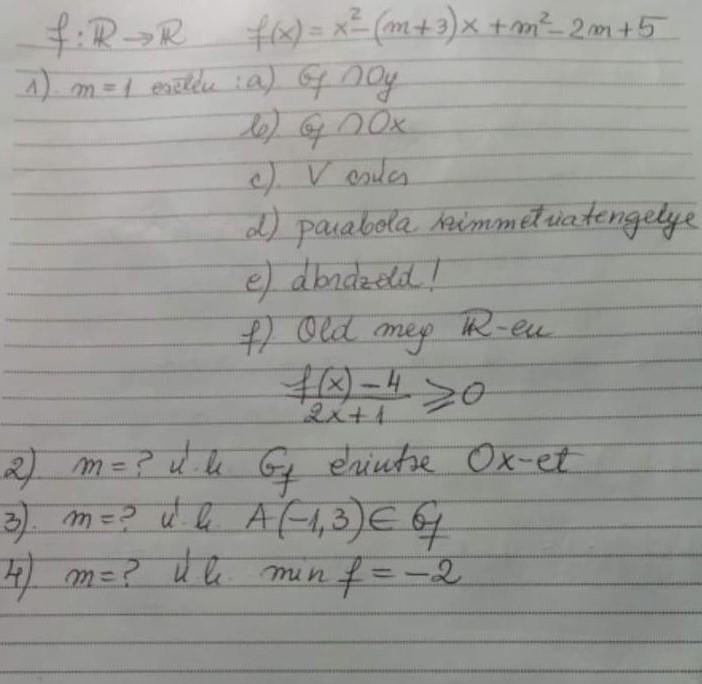 f : ℝ → ℝ f(x) = x² - (m+3)x + m² - 2m + 5
1). m = 1 esetén : a) Gf ∩ Oy
b) Gf ∩ Ox
c) V csúcs
d) parabola szimmetriatengelye
e) ábrázold!
f) Old meg ℝ-en
f(x) - 4
───── ≥ 0
2x + 1
2) m = ? ú. h. Gf érintse Ox-et
3). m = ? ú. h. A(-1, 3) ∈ Gf
4) m = ? ú. h. min f = -2